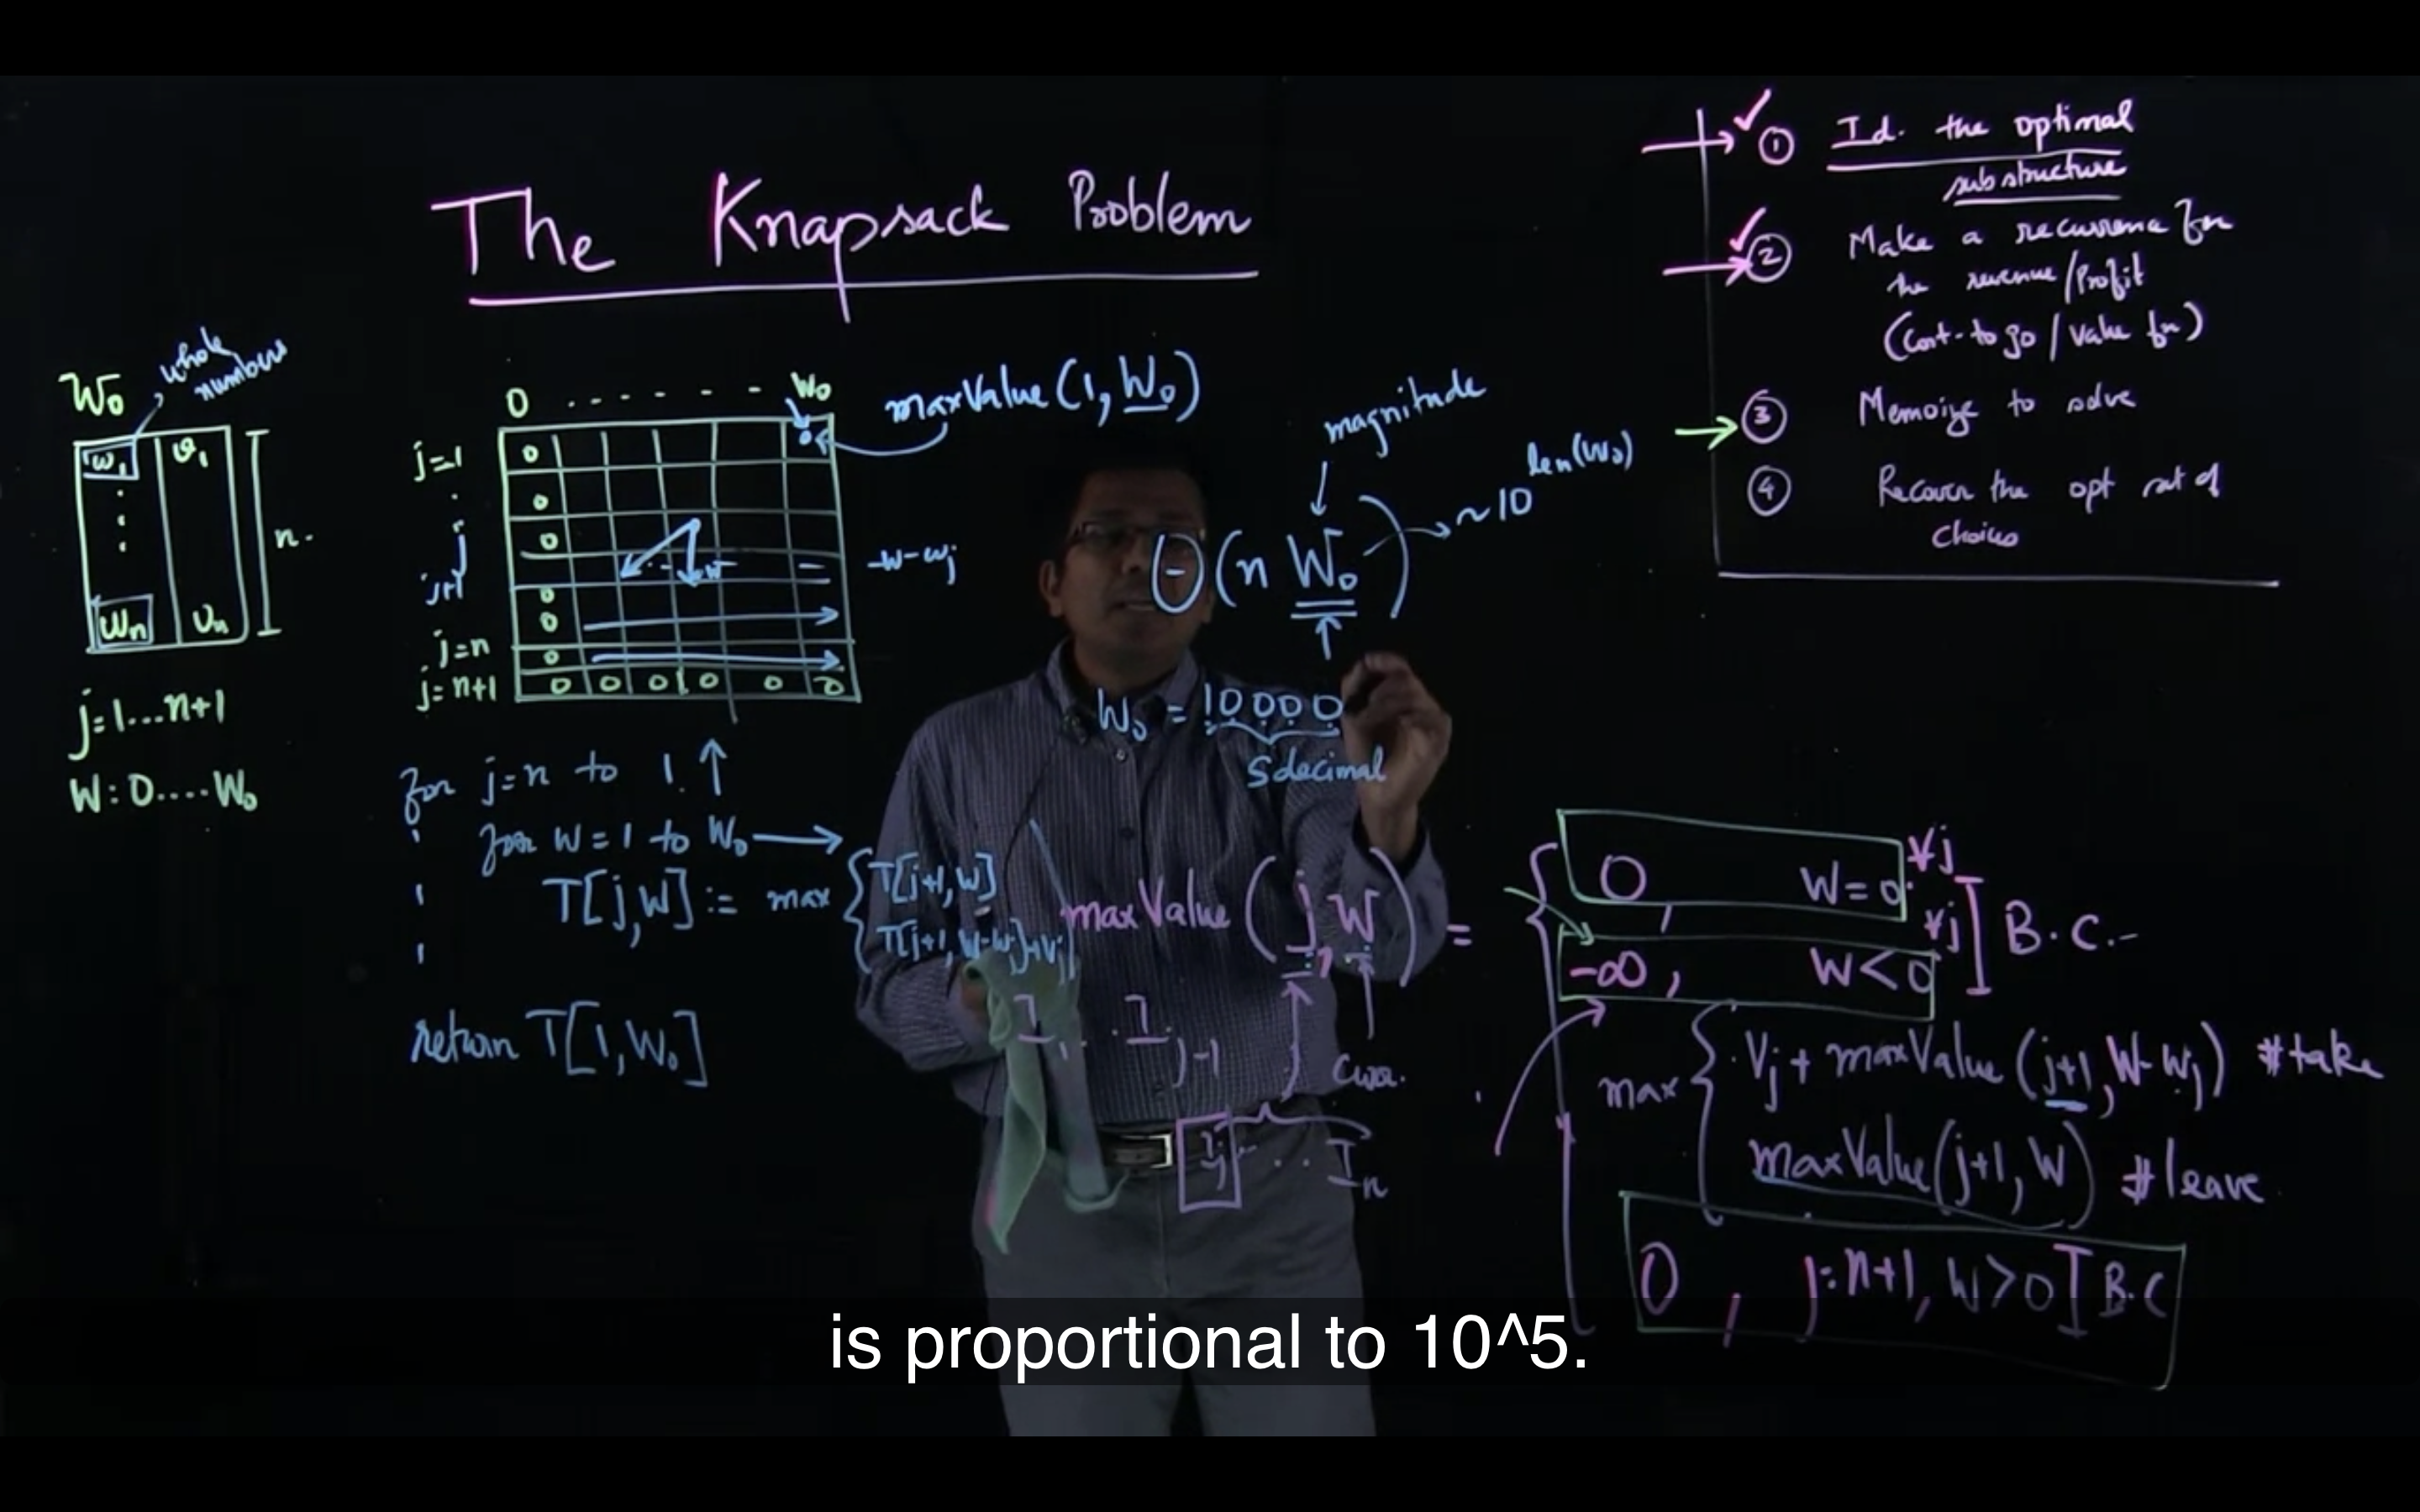 The Knapsack Problem
① Id. the optimal
substructure
② Make a recurrence fn
the revenue/Profit
(Cost-to go / Value fn)
③ Memoize to solve
④ Recover the opt set of
choices
W₀
whole
numbers
w₁ v₁
wₙ vₙ
n.
j=1...n+1
W: 0....W₀
0 . . . . . . W₀
maxValue(1, W₀)
j=1
j
j+1
j=n
j=n+1
0
0
0
0
0
0
0 0 0 0 0 0
W
-w-wⱼ
magnitude
Θ(n W₀)
~10^len(W₀)
W₀ = 10000
5 decimal
for j=n to 1.
for w=1 to W₀
T[j,W] := max { T[j+1,W]
T[j+1,W-wj]+Vj
return T[1,W₀]
maxValue(j,W) =
I₁ . . Iⱼ₋₁
Iⱼ . . . Iₙ
0, W=0 ∀j
-∞, W<0 ∀j
B.C.
max { Vj + maxValue(j+1, W-wj) #take
maxValue(j+1, W) #leave
0, j=n+1, W>0 B.C
is proportional to 10^5.